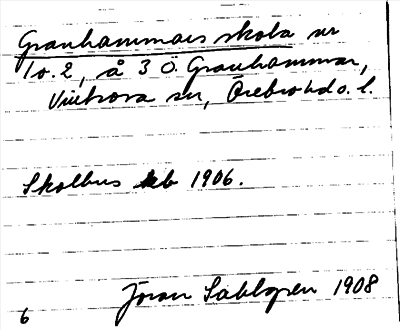 Granhammars skola nr
1 o. 2, å 3 Ö. Granhammar,
Vintrosa sn, Örebro hd o. l.
Skolhus kb 1906.
Jöran Sahlgren 1908
6